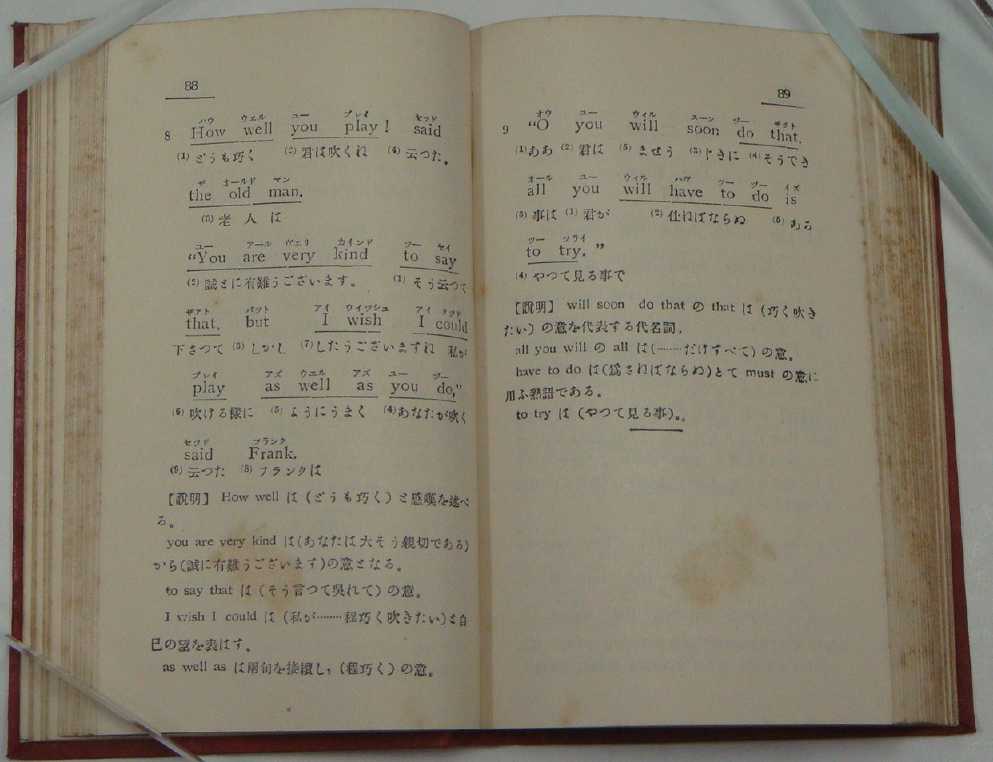 88
ハウ ウェル ユー プレイ セッド
8 How well you play! said
(1) どうも巧く (2) 君は吹くね (4) 云つた。
ザ オールド マン
the old man.
(3) 老人は
ユー アール ヴェリ カインド ツー セイ
“You are very kind to say
(2) 誠とに有難うございます。 (1) そう云つて
ザアト バット アイ ウイッシュ アイ クウド
that, but I wish I could
下さつて (3) しかし (7) したうございますね 私が
プレイ アズ ウエル アズ ユー ヅー
play as well as you do,”
(6) 吹ける様に (5) ようにうまく (4) あなたが吹く
セッド フランク
said Frank.
(9) 云つた (8) フランクは
【説明】 How well は (どうも巧く) と感嘆を述べ
る。
you are very kind は(あなたは大そう親切である)
から(誠に有難うございます)の意となる。
to say that は (そう言つて呉れて) の意。
I wish I could は (私が……程巧く吹きたい)と自
己の望を表はす。
as well as は兩句を接續し, (程巧く) の意。
89
オウ ユー ウィル スーン ヅー ザット
9 “O you will soon do that.
(1) ああ (2) 君は (5) ませう (3) ぢきに (4) そうでき
オール ユー ウィル ハヴ ツー ヅー イズ
all you will have to do is
(3) 事は (1) 君が (2) 仕ねばならぬ (5) ある
ツー ツライ
to try.”
(4) やつて見る事で
【説明】 will soon do that の that は (巧く吹き
たい) の意を代表する代名詞。
all you will の all は(……だけすべて) の意。
have to do は(爲さねばならぬ)とて must の意に
用ふ熟語である。
to try は (やつて見る事)。